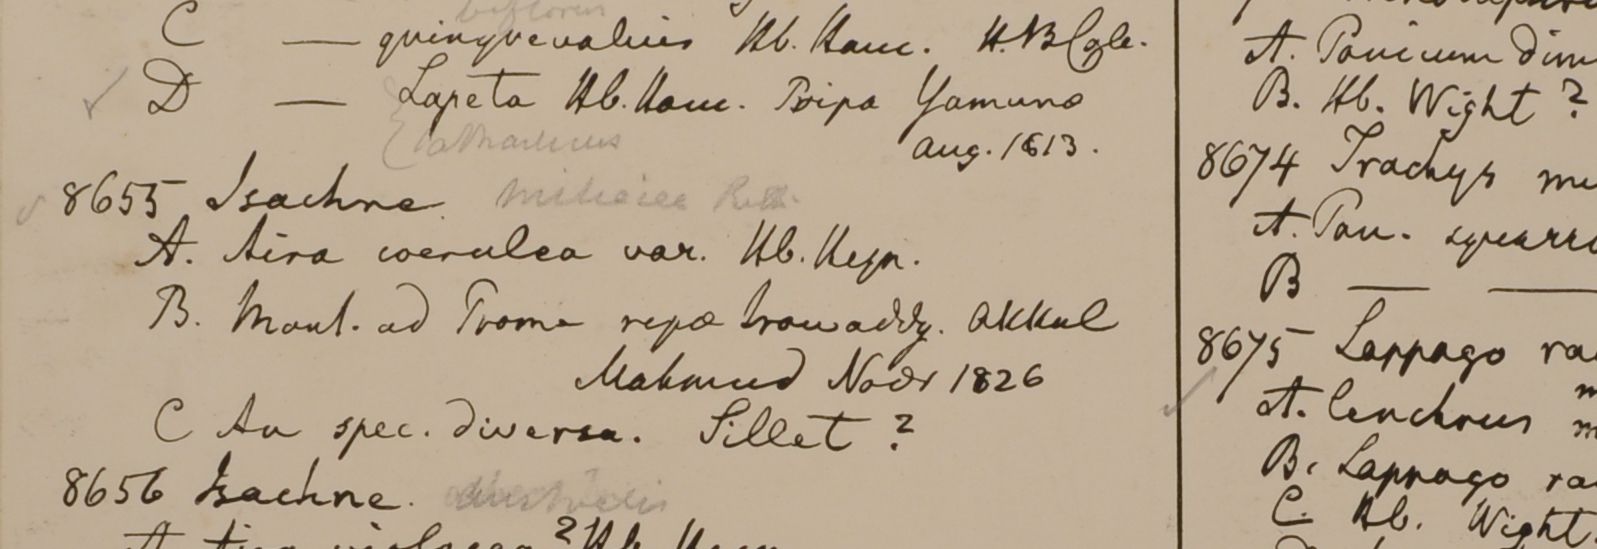 biflorus
C — quinquevalvis Hb. Ham. H.B.Cale.
D — Lapeta Hb. Ham. Ripa Yamuna
Catharticus
Aug. 1813.
8655 Isachne miliacea Roth.
A. Aira coerulea var. Hb. Heyn.
B. Mont. ad Prome ripæ Irawaddy. Akkul
Mahmud Novr 1826
C An spec. diversa. Sillet ?
8656 Isachne. australis
A Aira violacea ? Hb. Heyn
A. Panicum dim
B. Hb. Wight ?
8674 Trachys mu
A. Pan. squarro
B — —
8675 Lappago ra
A. Cenchrus
B. Lappago ra
C. Hb. Wight.